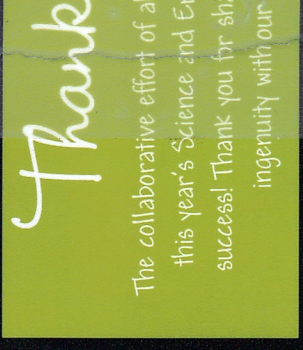 Thank
The collaborative effort of al
this year's Science and En
success! Thank you for sha
ingenuity with our